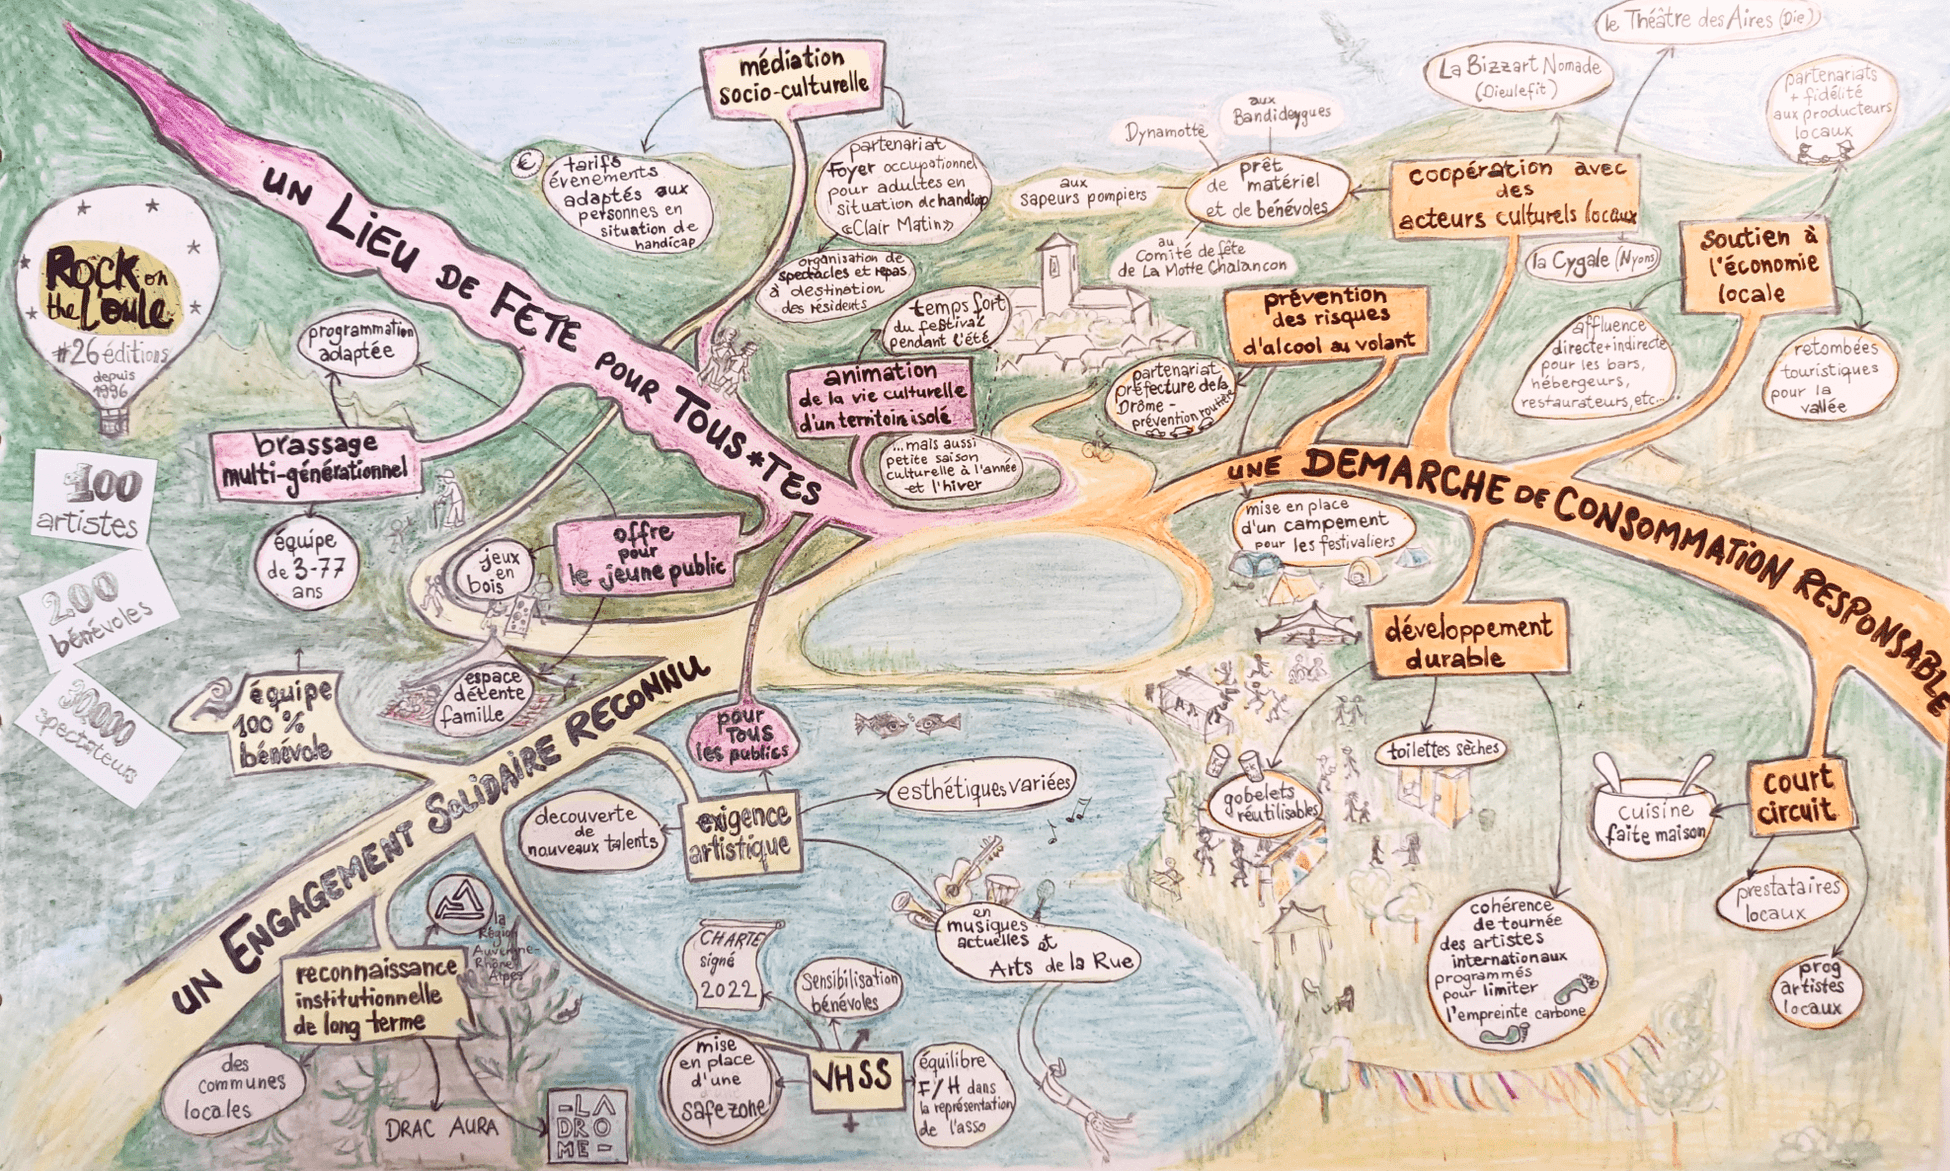 Rock on
the L'oule
#26 éditions
depuis
1996
100
artistes
200
bénévoles
30,000
spectateurs
UN LIEU DE FETE POUR TOUS+TES
médiation
socio-culturelle
€
tarifs
évenements
adaptés aux
personnes en
situation de
handicap
partenariat
Foyer occupationnel
pour adultes en
situation de handicap
«Clair Matin»
organisation de
spectacles et repas
à destination
des résidents
animation
de la vie culturelle
d'un territoir isolé
temps fort
du festival
pendant l'été
...mais aussi
petite saison
culturelle à l'année
et l'hiver
programmation
adaptée
brassage
multi-générationnel
équipe
de 3-77
ans
offre
pour
le jeune public
jeux
en
bois
espace
détente
famille
pour
TOUS
les publics
UN ENGAGEMENT SOLIDAIRE RECONNU
équipe
100 %
bénévole
exigence
artistique
decouverte
de
nouveaux talents
esthétiques variées
en
musiques
actuelles et
Arts de la Rue
reconnaissance
institutionnelle
de long terme
la
Région
Auvergne-
Rhône-
Alpes
des
communes
locales
DRAC AURA
-LA
DRO
ME-
VHSS
CHARTE
signé
2022
Sensibilisation
bénévoles
mise
en place
d'une
safe zone
équilibre
F/H dans
la représentation
de l'asso
UNE DEMARCHE DE CONSOMMATION RESPONSABLE
prévention
des risques
d'alcool au volant
partenariat
préfecture de la
Drôme -
prévention routière
mise en place
d'un campement
pour les festivaliers
coopération avec
des
acteurs culturels locaux
le Théâtre des Aires (Die)
La Bizzart Nomade
(Dieulefit)
la Cygale (Nyons)
prêt
de matériel
et de bénévoles
aux
Bandideygues
Dynamotte
aux
sapeurs pompiers
au
Comité de fête
de La Motte Chalancon
soutien à
l'économie
locale
partenariats
+ fidélité
aux producteurs
locaux
affluence
directe+indirecte
pour les bars,
hébergeurs,
restaurateurs, etc...
retombées
touristiques
pour la
vallée
développement
durable
gobelets
réutilisables
toilettes sèches
cohérence
de tournée
des artistes
internationaux
programmés
pour limiter
l'empreinte carbone
court
circuit
cuisine
faite maison
prestataires
locaux
prog
artistes
locaux